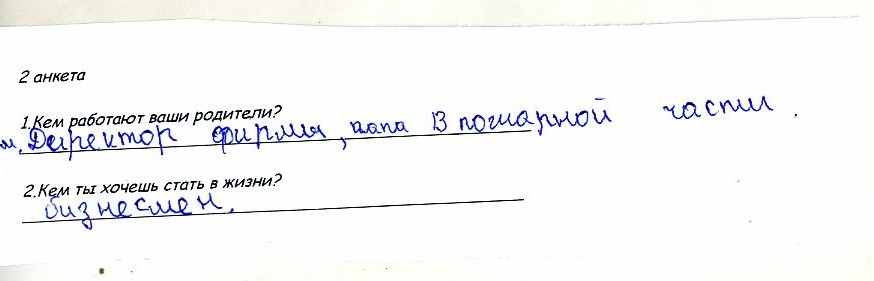 2 анкета
1.Кем работают ваши родители?
м. Директор фирмы, папа В пожарной части.
2.Кем ты хочешь стать в жизни?
бизнесмен.